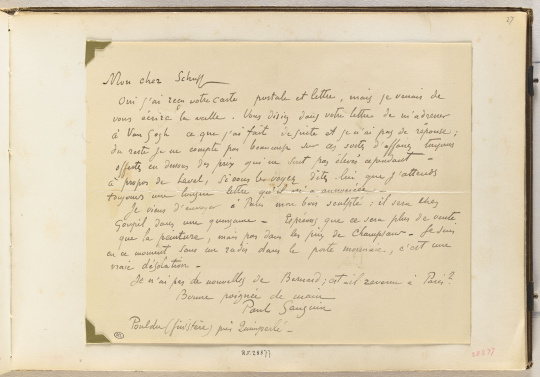 27
Mon cher Schuff
Oui j'ai reçu votre carte postale et lettre, mais je venais de
vous écrire la veille. Vous disiez dans votre lettre de m'adresser
à Van Gogh ce que j'ai fait de juste et je n'ai pas de réponse;
du reste je ne compte pas beaucoup sur ces sortes d'affaires toujours
offertes en dessous des prix qui ne sont pas élevés cependant -
à propos de Laval, si vous le voyez dites lui que j'attends
toujours une longue lettre qu'il m'a annoncée -
Je viens d'envoyer à Paris mon bois sculpté; il sera chez
Goupil dans une quinzaine - Espérons que ce sera plus de vente
que la peinture, mais pas dans les prix de Champsaur - Je suis
en ce moment sans un radis dans le porte monnaie, c'est une
vraie désolation -
Je n'ai pas de nouvelles de Bernard; est-il revenu à Paris?
Bonne poignée de main
Paul Gauguin
Pouldu (finistère) près Quimperlé -
R.F. 28877
28877